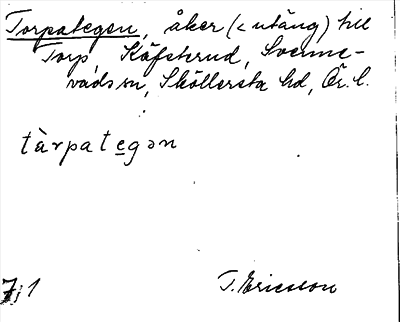 Torpategen, åker (< utäng) till
Torp Käfstrud, Svenne-
vads sn, Sköllersta hd, Ör. l.
tàrpategən
7;1
T. Ericsson